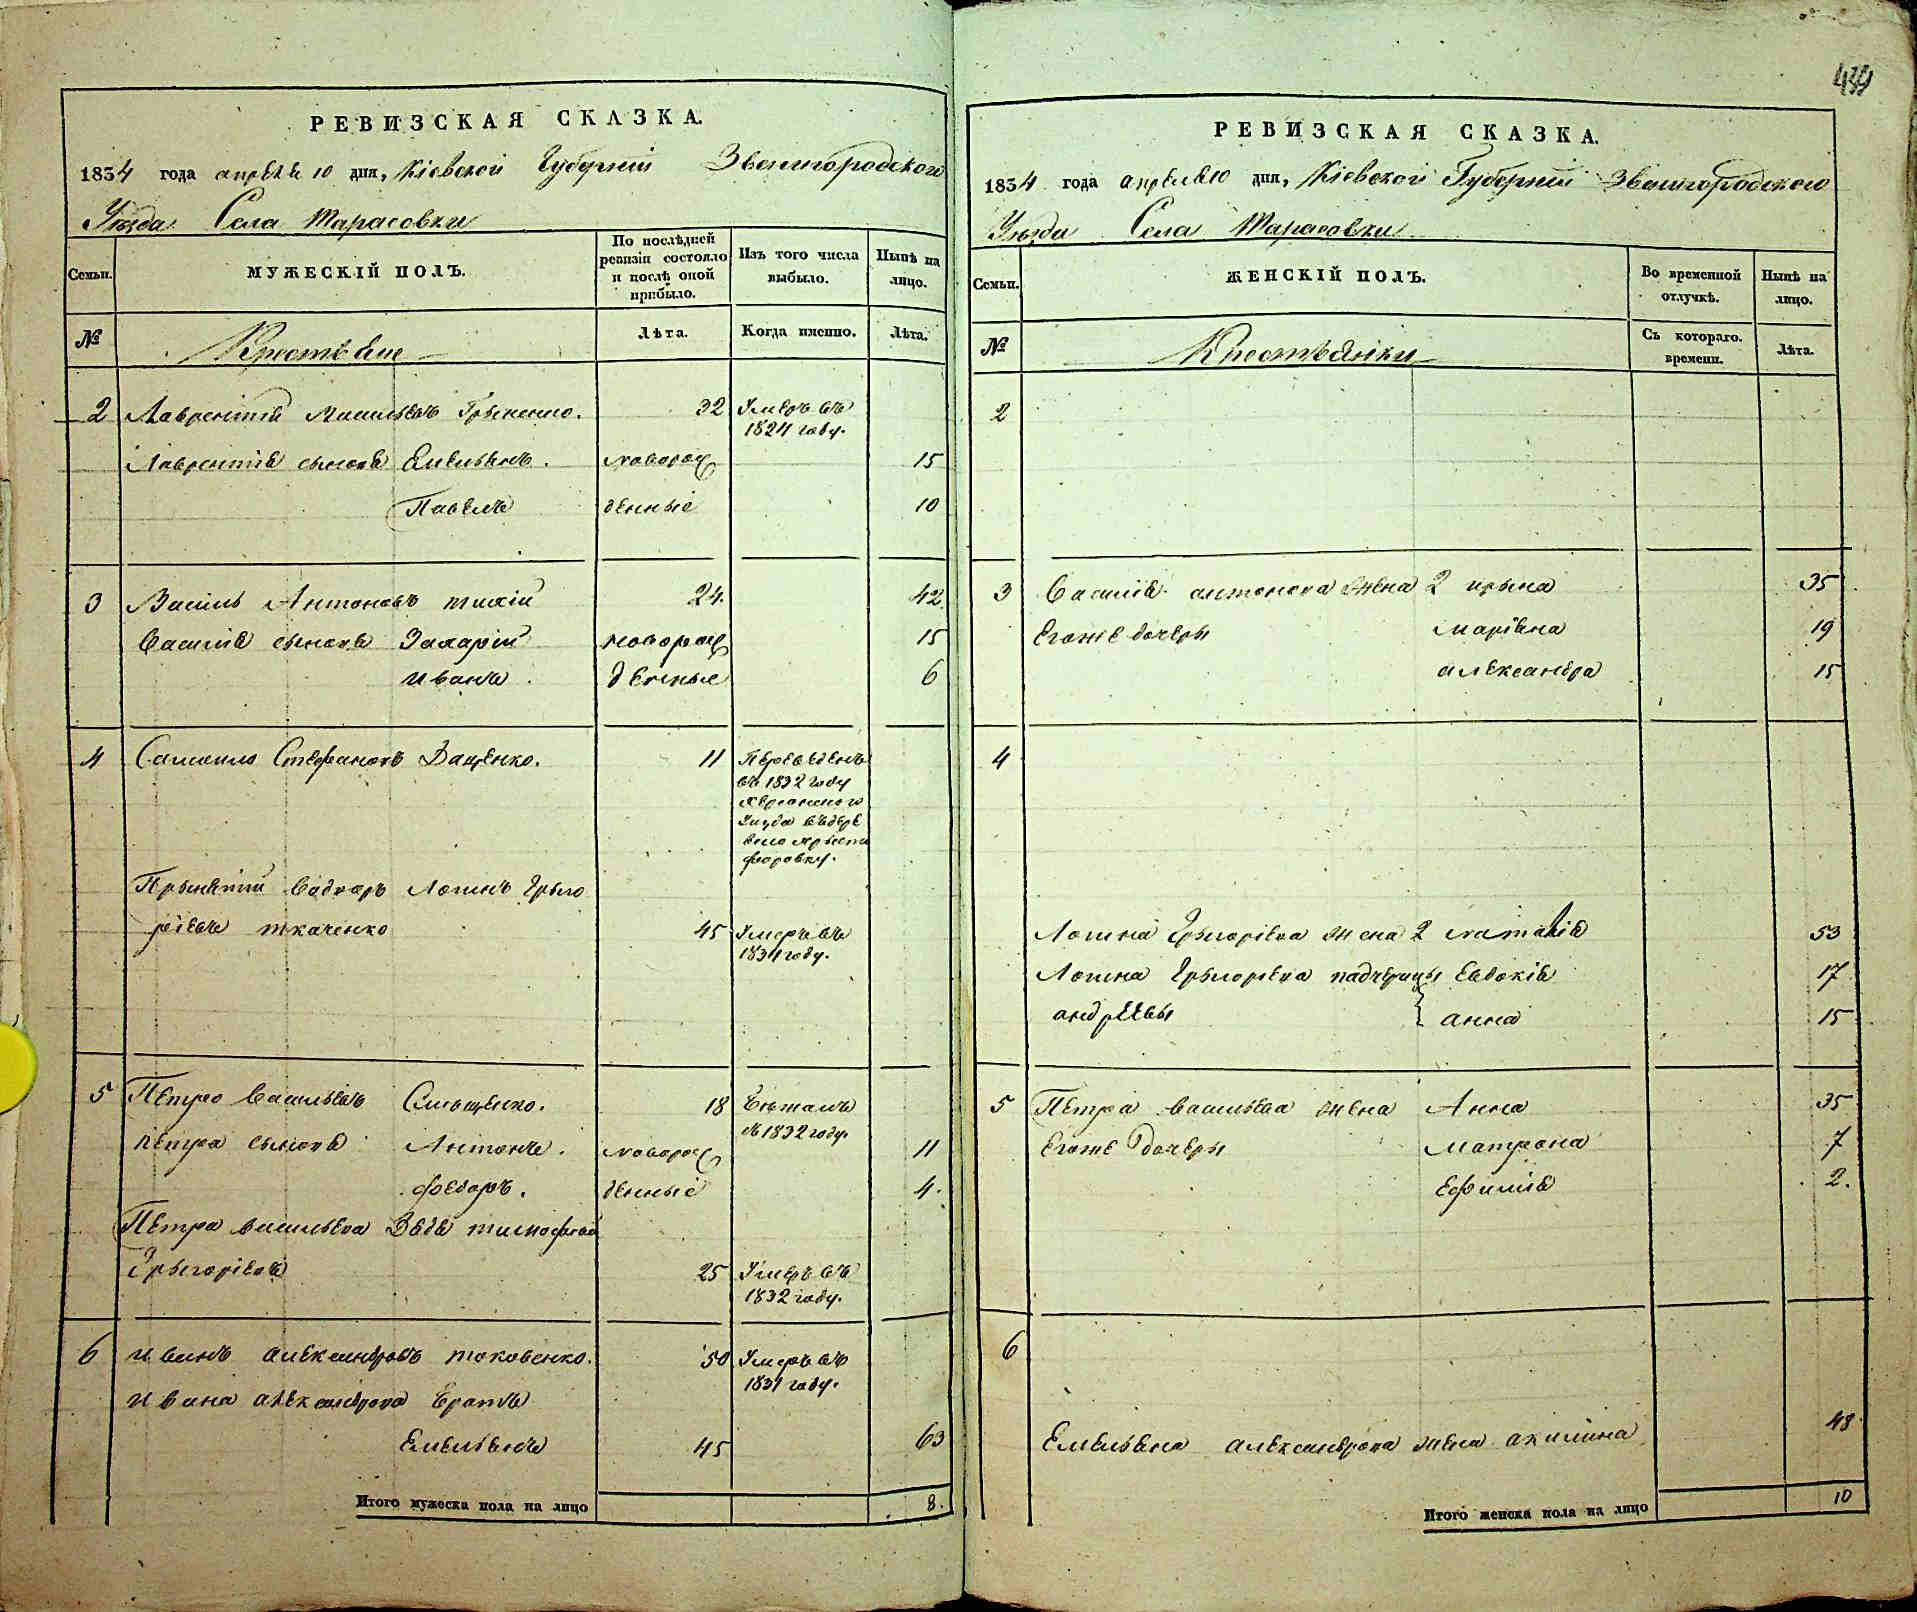 439
РЕВИЗСКАЯ СКАЗКА.
1834 года апреля 10 дня, Кіевской Губерніи Звенигородского
Уезда Села Тарасовки
Семьи.
МУЖЕСКІЙ ПОЛЪ.
По послѣдней ревизіи состояло и послѣ оной прибыло.
Изъ того числа выбыло.
Нынѣ на лицо.
№
Крестьяне
Лѣта.
Когда именно.
Лѣта.
2 Лаврентій 32 Умеръ въ
1824 году.
Лаврентія сыновя Емельянъ. новорож 15
Павелъ денные 10
3 Василь Антоновъ тихій 24. 42
Василія сыновя Захарій новорож 15
иванъ денные 6
4 Самоило Стефановъ Ващенко. 11 Переведенъ
въ 1832 году
Херсонского
Уезда въ дере
вню Христо
форовку.
Прынятій Логинъ Грыго
ріевъ ткаченко 45 Умеръ въ
1831 году.
5 Петро Васильевъ 18 Бежалъ
въ 1832 году.
Петра сыновя Антонъ. новорож 11
федоръ. денные 4.
Петра васильева Зядя тимофей
Грыгоріевъ 25 Умеръ въ
1832 году.
6 иванъ александровъ токовенко. 50 Умеръ въ
1831 году.
ивана александрова братъ
Емельянъ 45 63
Итого мужеска пола на лицо 8.
РЕВИЗСКАЯ СКАЗКА.
1834 года апреля 10 дня, Кіевской Губерніи Звенигородского
Уезда Села Тарасовки
Семьи.
ЖЕНСКІЙ ПОЛЪ.
Во временной отлучкѣ.
Нынѣ на лицо.
№
Крестьянки
Съ котораго времени.
Лѣта.
2
3 Василія антонова жена 2 ирына 35
Егоже дочеры маріяна 19
александра 15
4
Логина Грыгоріева жена 2 наталія 53
Логина Грыгоріева падчерицы Евдокія 17
андреевы анна 15
5 Петра васильева жена Анна 35
Егоже дочеры матрона 7
Ефимія 2.
6
Емельяна александрова жена акилина 48
Итого женска пола на лицо 10